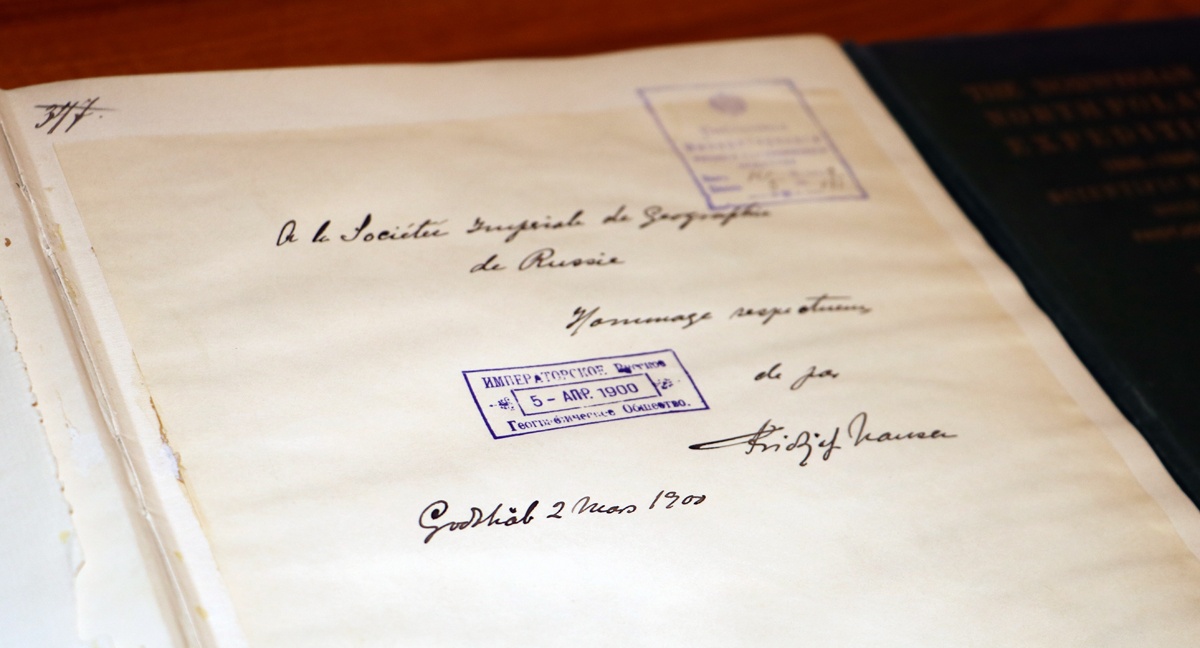 317.
A la Société Imperiale de Geographie
de Russie
Hommage respectueux
de par
Fridtjof Nansen
ИМПЕРАТОРСКОЕ Русское
5 - АПР. 1900
Географическое Общество.
Godthåb 2 Mars 1900
THE NORWEGIAN
NORTH POLAR
EXPEDITION
SCIENTIFIC